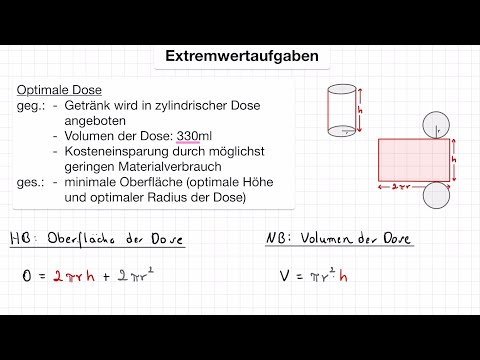 Extremwertaufgaben
Optimale Dose
geg.: - Getränk wird in zylindrischer Dose
angeboten
- Volumen der Dose: 330ml
- Kosteneinsparung durch möglichst
geringen Materialverbrauch
ges.: - minimale Oberfläche (optimale Höhe
und optimaler Radius der Dose)
h
r
r
h
2πr
HB: Oberfläche der Dose
NB: Volumen der Dose
O = 2πrh + 2πr²
V = πr²·h